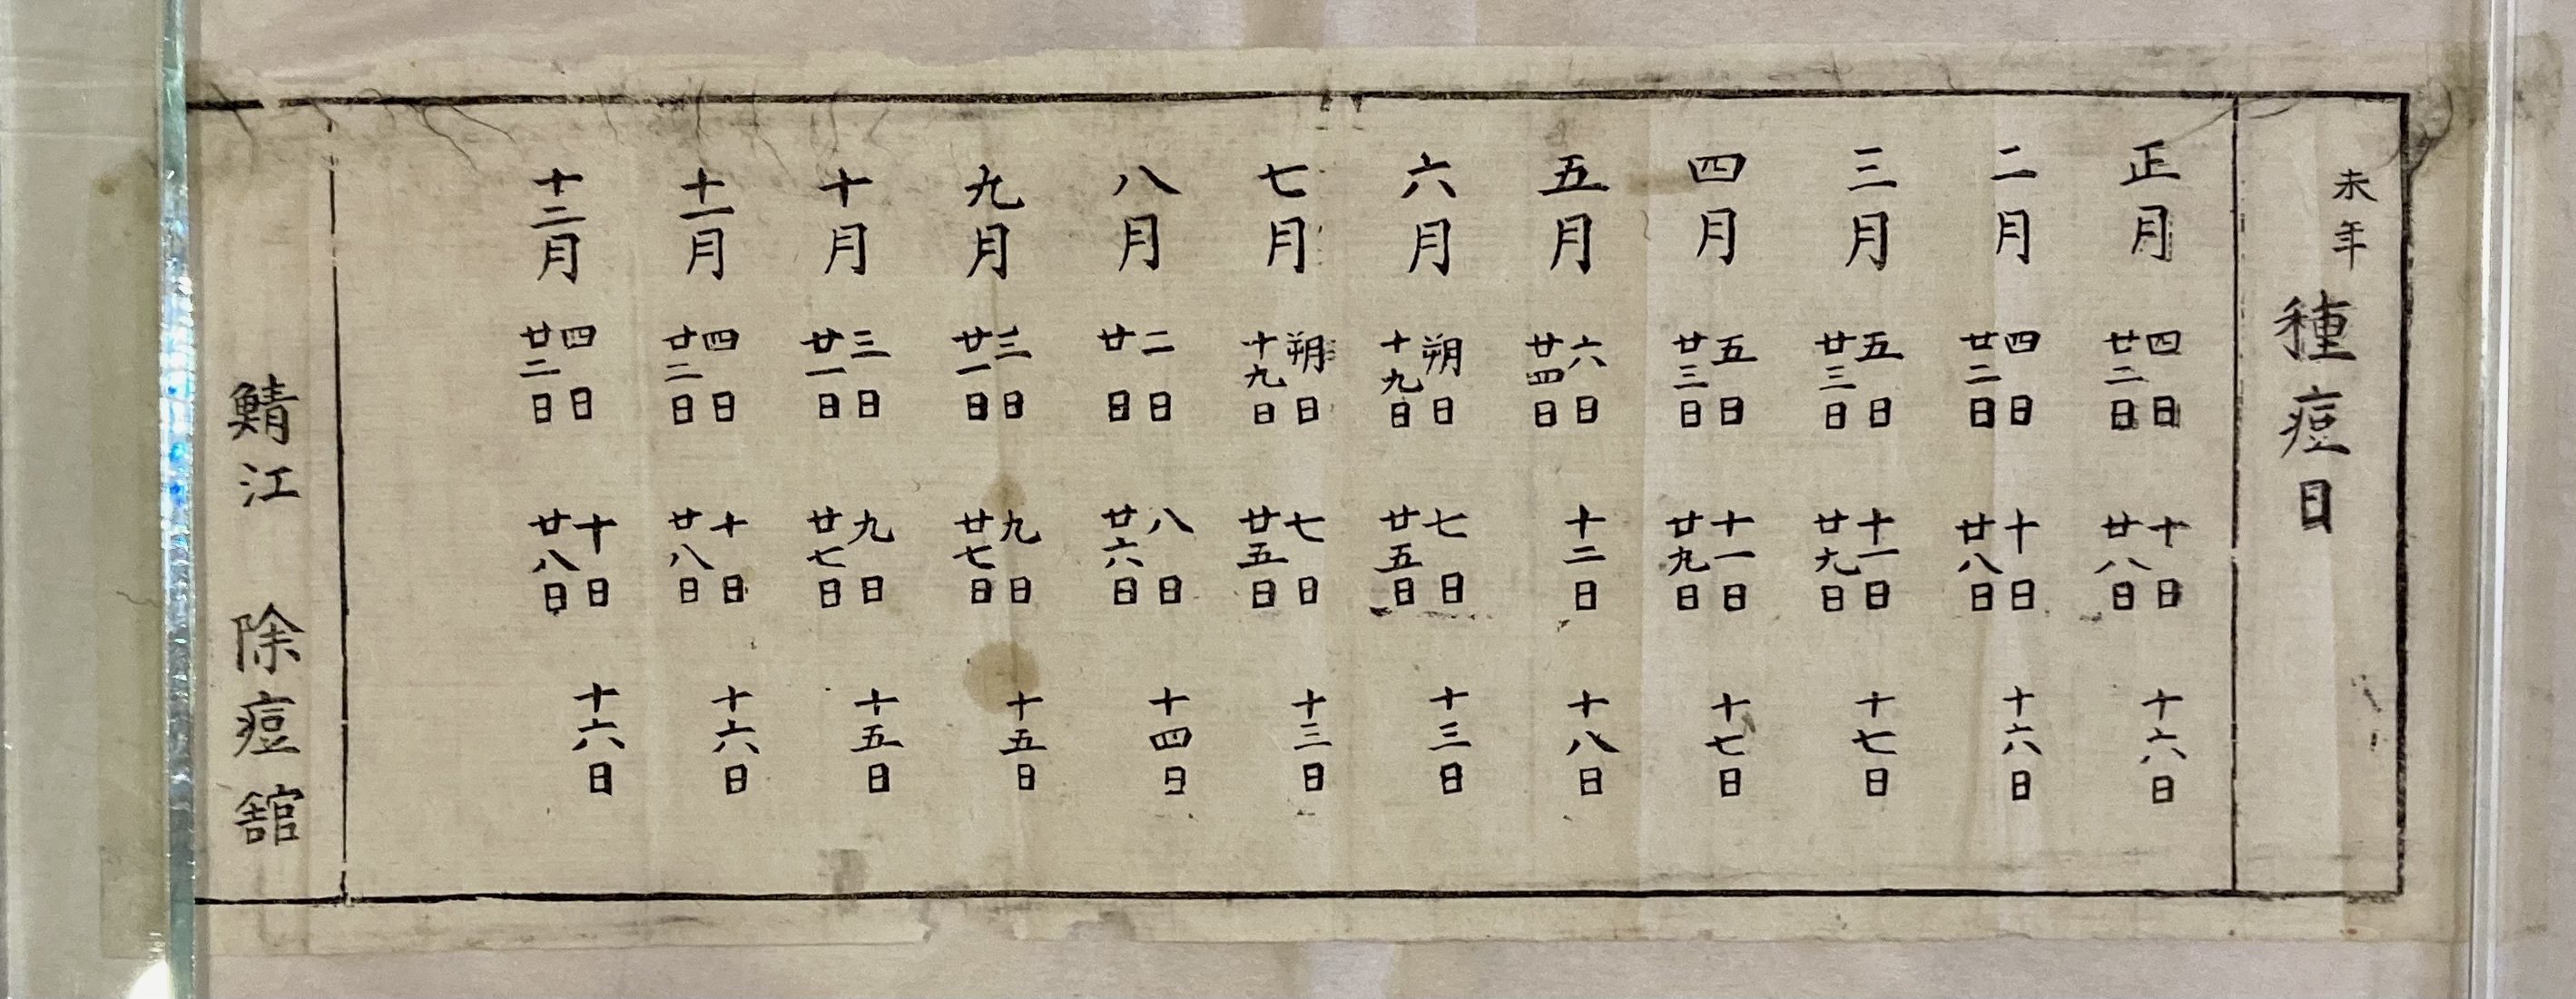 未年
種痘日
正月 四日 廿二日 十日 廿八日 十六日
二月 四日 廿二日 十日 廿八日 十六日
三月 五日 廿三日 十一日 廿九日 十七日
四月 五日 廿三日 十一日 廿九日 十七日
五月 六日 廿四日 十二日 十八日
六月 朔日 十九日 七日 廿五日 十三日
七月 朔日 十九日 七日 廿五日 十三日
八月 二日 廿日 八日 廿六日 十四日
九月 三日 廿一日 九日 廿七日 十五日
十月 三日 廿一日 九日 廿七日 十五日
十一月 四日 廿二日 十日 廿八日 十六日
十二月 四日 廿二日 十日 廿八日 十六日
鯖江 除痘舘